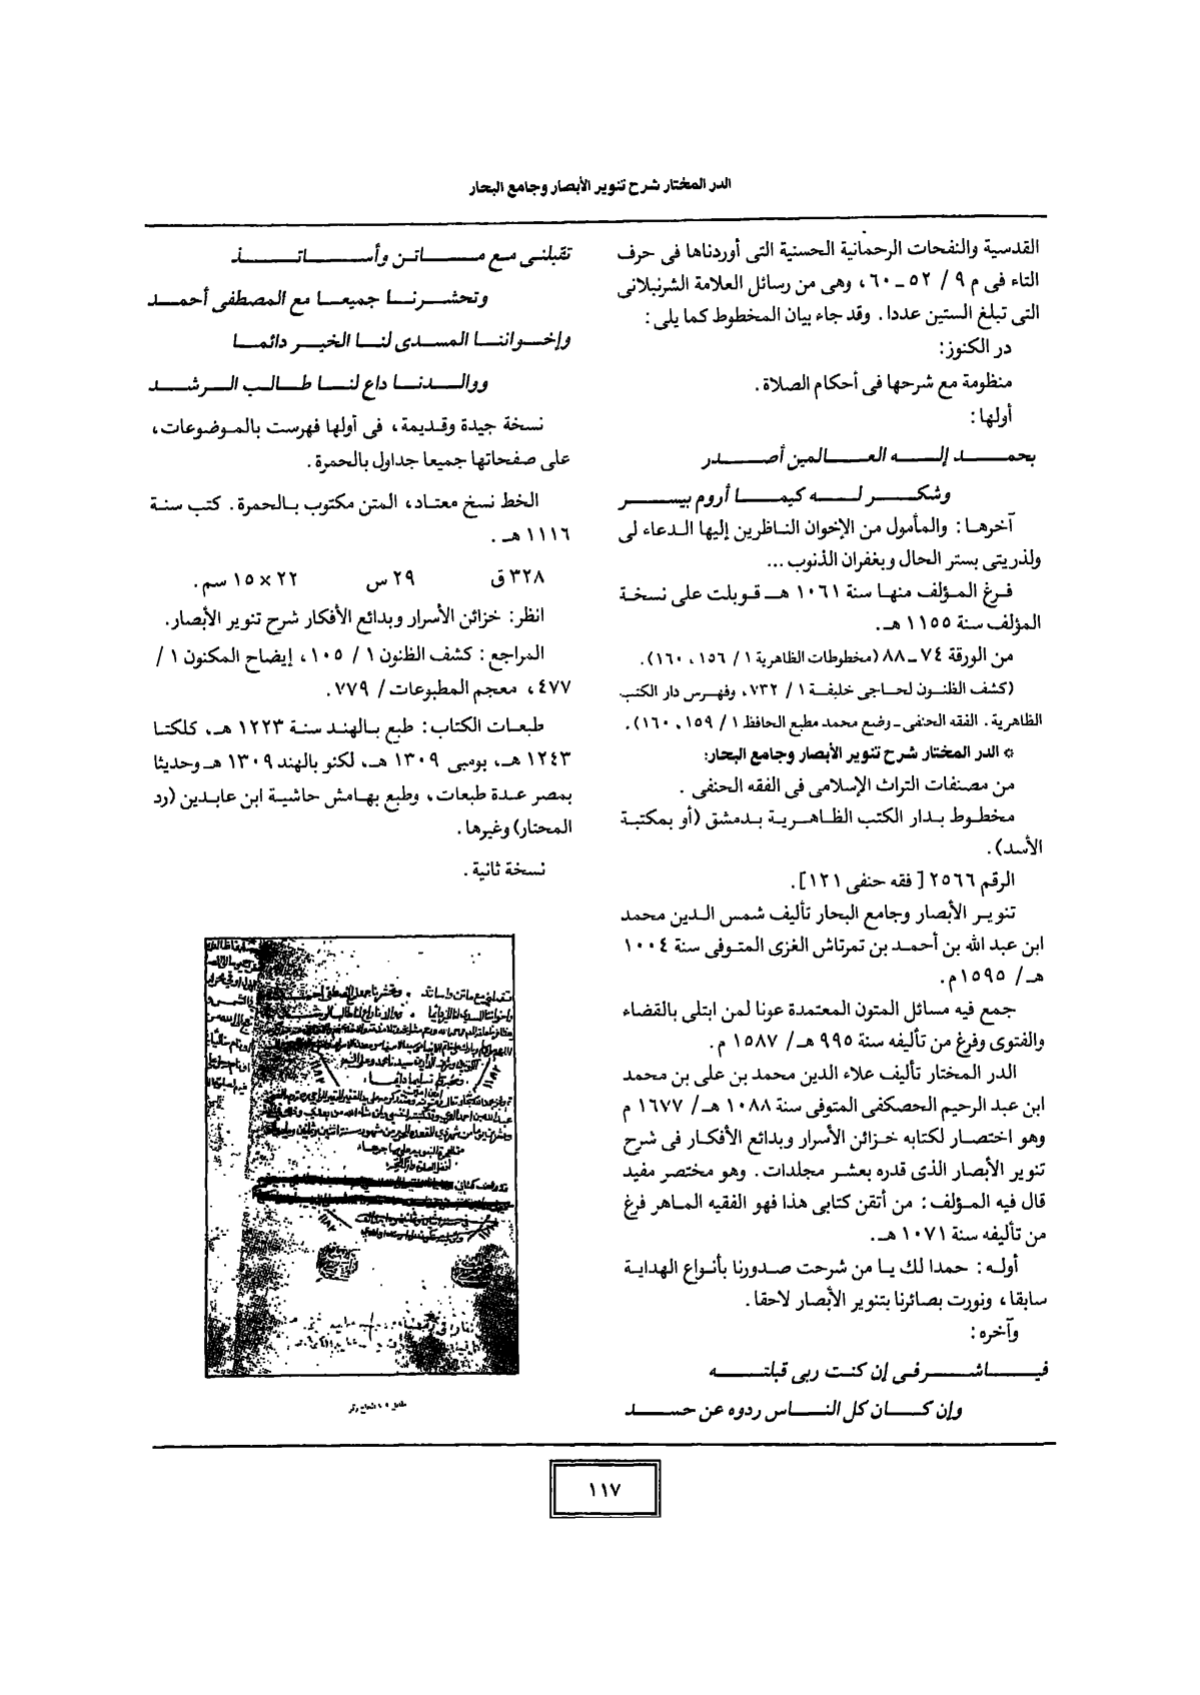 الدر المختار شرح تنوير الأبصار وجامع البحار
القدسية والنفحات الرحمانية الحسنية التى أوردناها فى حرف
التاء فى م ٩ / ٥٢ ـ ٦٠، وهى من رسائل العلامة الشرنبلانى
التى تبلغ الستين عددا. وقد جاء بيان المخطوط كما يلى:
در الكنوز:
منظومة مع شرحها فى أحكام الصلاة.
أولها:
بحمد إله العالمين أصدر
وشكر له كيما أروم بيسر
آخرها: والمأمول من الإخوان الناظرين إليها الدعاء لى
ولذريتى بستر الحال وبغفران الذنوب ...
فرغ المؤلف منها سنة ١٠٦١ هـ قوبلت على نسخة
المؤلف سنة ١١٥٥ هـ.
من الورقة ٧٤ ـ ٨٨ (مخطوطات الظاهرية ١ / ١٥٦، ١٦٠).
(كشف الظنون لحاجى خليفة ١ / ٧٣٢، وفهرس دار الكتب
الظاهرية. الفقه الحنفى ـ وضع محمد مطيع الحافظ ١ / ١٥٩، ١٦٠).
* الدر المختار شرح تنوير الأبصار وجامع البحار:
من مصنفات التراث الإسلامى فى الفقه الحنفى.
مخطوط بدار الكتب الظاهرية بدمشق (أو بمكتبة
الأسد).
الرقم ٢٥٦٦ [فقه حنفى ١٢١].
تنوير الأبصار وجامع البحار تأليف شمس الدين محمد
ابن عبد الله بن أحمد بن تمرتاش الغزى المتوفى سنة ١٠٠٤
هـ/ ١٥٩٥م.
جمع فيه مسائل المتون المعتمدة عونا لمن ابتلى بالقضاء
والفتوى وفرغ من تأليفه سنة ٩٩٥ هـ/ ١٥٨٧ م.
الدر المختار تأليف علاء الدين محمد بن على بن محمد
ابن عبد الرحيم الحصكفى المتوفى سنة ١٠٨٨ هـ/ ١٦٧٧ م
وهو اختصار لكتابه خزائن الأسرار وبدائع الأفكار فى شرح
تنوير الأبصار الذى قدره بعشر مجلدات. وهو مختصر مفيد
قال فيه المؤلف: من أتقن كتابى هذا فهو الفقيه الماهر فرغ
من تأليفه سنة ١٠٧١ هـ.
أوله: حمدا لك يا من شرحت صدورنا بأنواع الهداية
سابقا، ونورت بصائرنا بتنوير الأبصار لاحقا.
وآخره:
فيا شرفى إن كنت ربى قبلته
وإن كان كل الناس ردوه عن حسد
تقبلنى مع ماتن وأساتذ
وتحشرنا جميعا مع المصطفى أحمد
وإخواننا المسدى لنا الخير دائما
ووالدنا داع لنا طالب الرشد
نسخة جيدة وقديمة، فى أولها فهرست بالموضوعات،
على صفحاتها جميعا جداول بالحمرة.
الخط نسخ معتاد، المتن مكتوب بالحمرة. كتب سنة
١١١٦ هـ.
٣٢٨ ق ٢٩ س ٢٢ × ١٥ سم.
انظر: خزائن الأسرار وبدائع الأفكار شرح تنوير الأبصار.
المراجع: كشف الظنون ١ / ١٠٥، إيضاح المكنون ١ /
٤٧٧، معجم المطبوعات / ٧٧٩.
طبعات الكتاب: طبع بالهند سنة ١٢٢٣ هـ، كلكتا
١٢٤٣ هـ، بومبى ١٣٠٩ هـ، لكنو بالهند ١٣٠٩ هـ وحديثا
بمصر عدة طبعات، وطبع بهامش حاشية ابن عابدين (رد
المحتار) وغيرها.
نسخة ثانية.
١١٧